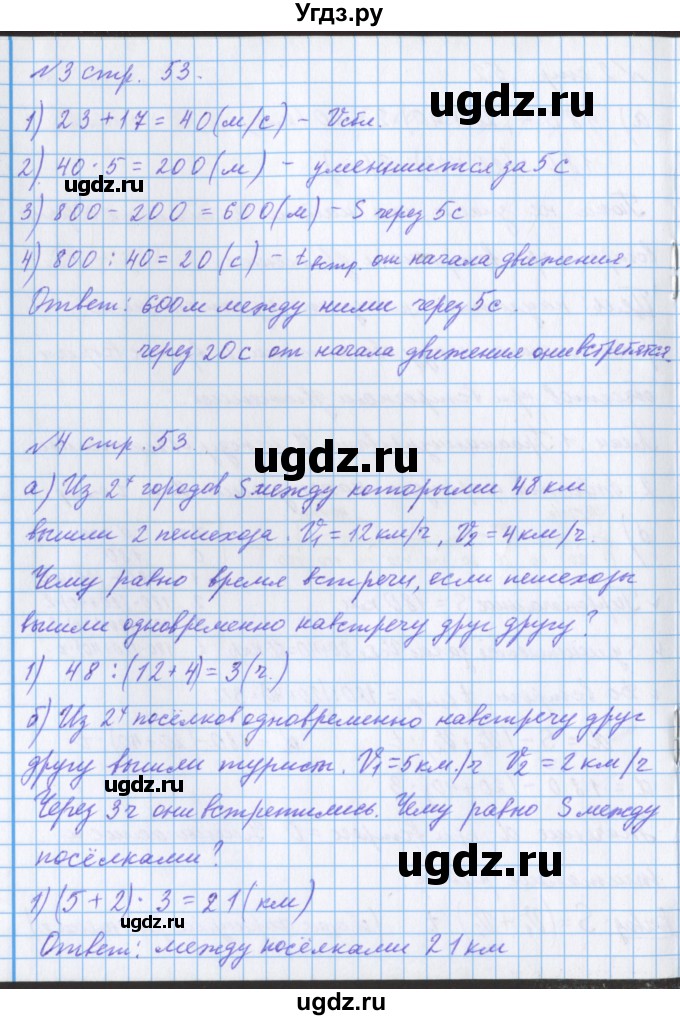 Угдз.ру
№3 стр. 53.
1) 23 + 17 = 40 (м/с) - Vсбл.
ugdz.ru
2) 40 · 5 = 200 (м) - уменьшится за 5с
ugdz.ru
3) 800 - 200 = 600 (м) - S через 5с
4) 800 : 40 = 20 (с) - t встр. от начала движения.
Ответ: 600м между ними через 5с.
через 20с от начала движения они встретятся.
№4 стр. 53.
ugdz.ru
а) Из 2х городов S между которыми 48 км
вышли 2 пешехода. V₁ = 12 км/ч, V₂ = 4 км/ч.
Чему равно время встречи, если пешеходы
вышли одновременно навстречу друг другу?
1) 48 : (12 + 4) = 3 (ч.)
б) Из 2х посёлков одновременно навстречу друг
другу вышли турист. V₁ = 5 км/ч V₂ = 2 км/ч
ugdz.ru
Через 3ч они встретились. Чему равно S между
посёлками?
ugdz.ru
1) (5 + 2) · 3 = 21 (км)
Ответ: между посёлками 21 км
ugdz.ru